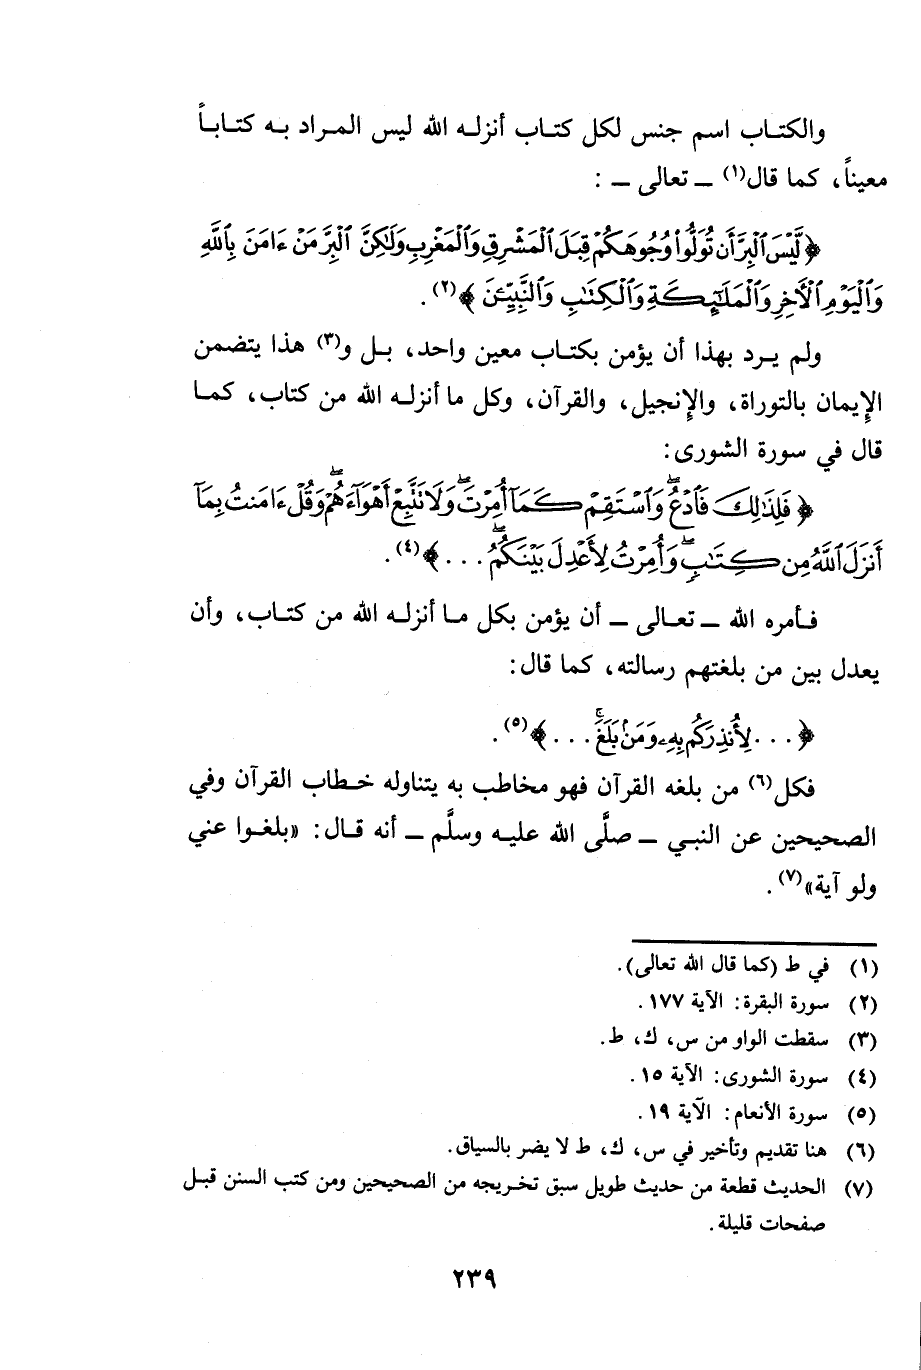 والكتـاب اسم جنس لكل كتـاب أنزلـه الله ليس المـراد بـه كتـابـاً
معيناً، كما قال(١) ـ تعالى ـ :
﴿ لَّيْسَ ٱلْبِرَّ أَن تُوَلُّوا۟ وُجُوهَكُمْ قِبَلَ ٱلْمَشْرِقِ وَٱلْمَغْرِبِ وَلَٰكِنَّ ٱلْبِرَّ مَنْ ءَامَنَ بِٱللَّهِ
وَٱلْيَوْمِ ٱلْأَخِرِ وَٱلْمَلَٰٓئِكَةِ وَٱلْكِتَٰبِ وَٱلنَّبِيِّـۧنَ ﴾(٢).
ولم يـرد بهذا أن يؤمن بكتـاب معين واحد، بـل و(٣) هذا يتضمن
الإيمان بالتوراة، والإنجيل، والقرآن، وكل ما أنزلـه الله من كتاب، كمـا
قال في سورة الشورى:
﴿ فَلِذَٰلِكَ فَٱدْعُ ۖ وَٱسْتَقِمْ كَمَآ أُمِرْتَ ۖ وَلَا نَتَّبِعْ أَهْوَآءَهُمْ ۖ وَقُلْ ءَامَنتُ بِمَآ
أَنزَلَ ٱللَّهُ مِن كِتَٰبٍ ۖ وَأُمِرْتُ لِأَعْدِلَ بَيْنَكُمُ ۖ . . . ﴾(٤).
فـأمره الله ـ تعـالى ـ أن يؤمن بكل مـا أنزلـه الله من كتـاب، وأن
يعدل بين من بلغتهم رسالته، كما قال:
﴿ . . . لِأُنذِرَكُم بِهِۦ وَمَنۢ بَلَغَ ۚ . . . ﴾(٥).
فكل(٦) من بلغه القرآن فهو مخاطب به يتناوله خـطاب القرآن وفي
الصحيحين عن النبـي ـ صلَّى الله عليـه وسلَّم ـ أنه قـال: «بلغـوا عني
ولو آية»(٧).
(١) في ط (كما قال الله تعالى).
(٢) سورة البقرة: الآية ١٧٧.
(٣) سقطت الواو من س، ك، ط.
(٤) سورة الشورى: الآية ١٥.
(٥) سورة الأنعام: الآية ١٩.
(٦) هنا تقديم وتأخير في س، ك، ط لا يضر بالسياق.
(٧) الحديث قطعة من حديث طويل سبق تخـريجه من الصحيحين ومن كتب السنن قبـل
صفحات قليلة.
٢٣٩